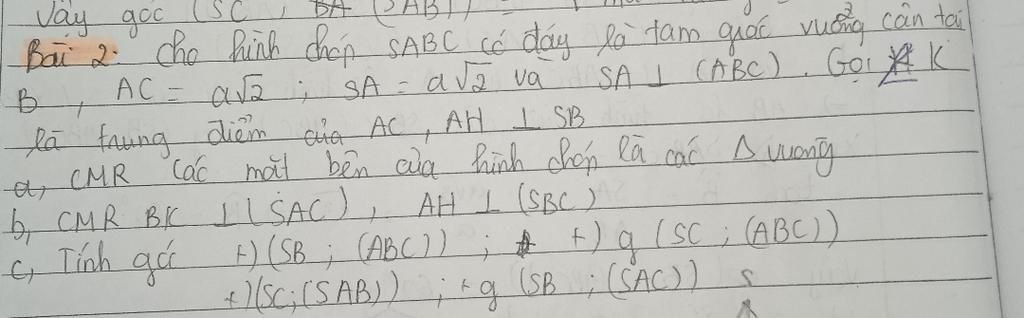 Vậy góc (SC, (SAB)) =
Bài 2. Cho hình chóp SABC có đáy là tam giác vuông cân tại
B, AC = a√2 ; SA = a√2 và SA ⊥ (ABC). Gọi K
là trung điểm của AC, AH ⊥ SB
a, CMR các mặt bên của hình chóp là các Δ vuông
b, CMR BK ⊥ (SAC), AH ⊥ (SBC)
c, Tính góc +) (SB ; (ABC)) ; +) g (SC ; (ABC))
+) (SC; (SAB)) ; + g (SB ; (SAC)) S